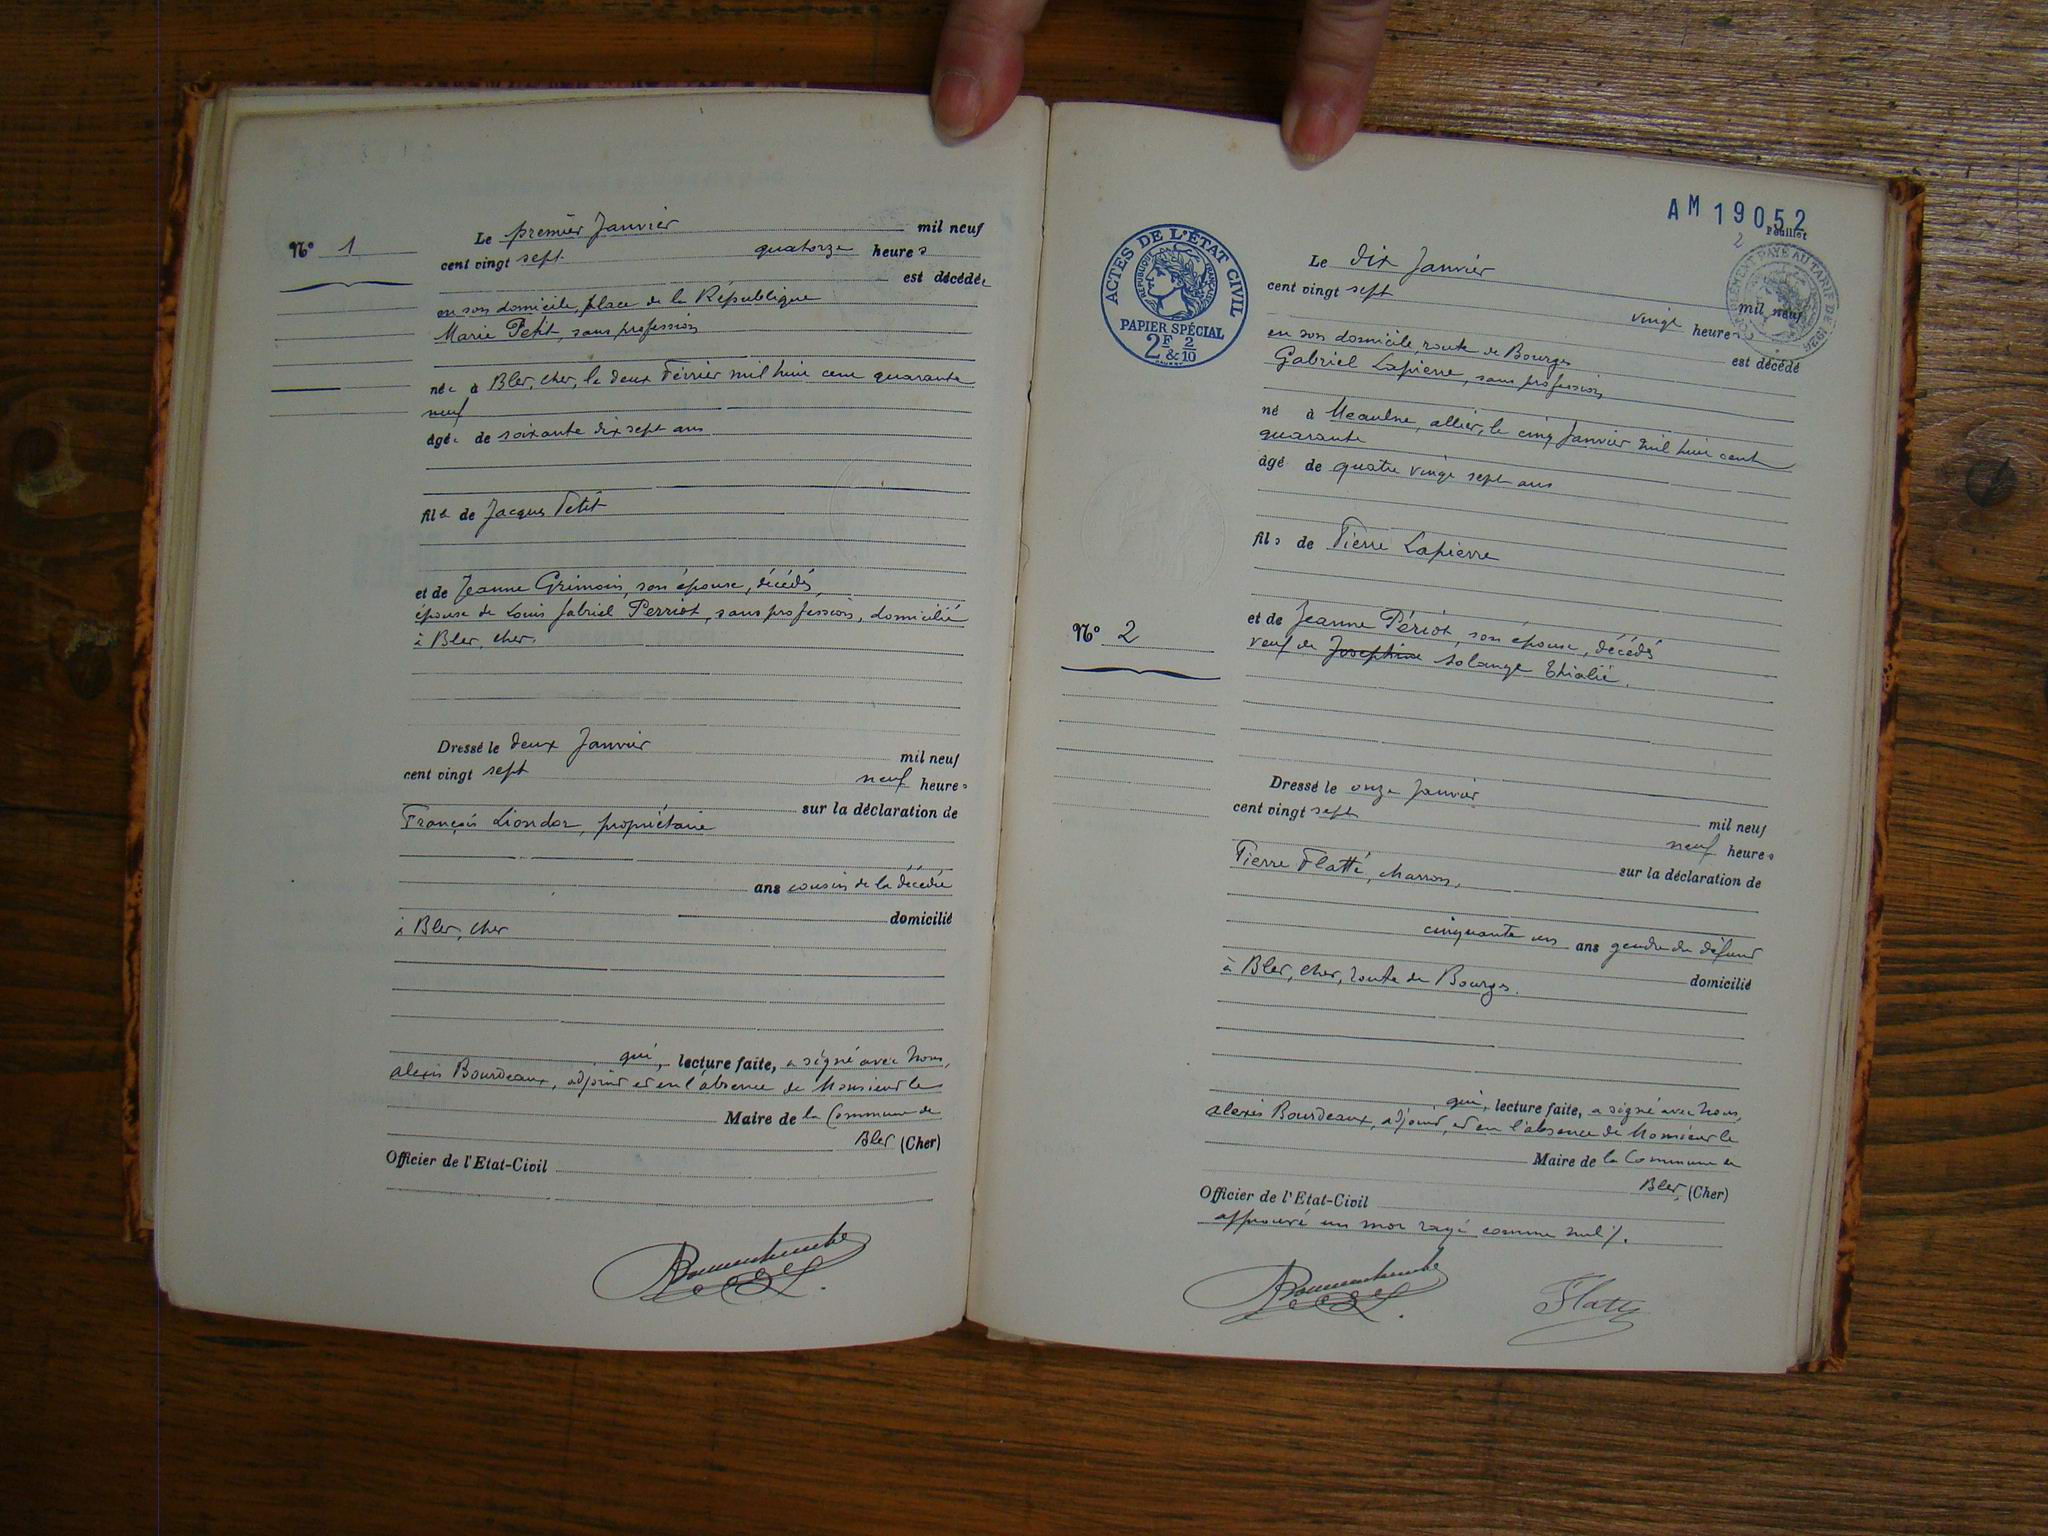 N° 1
Le premier Janvier mil neuf
cent vingt sept quatorze heures
est décédée
en son domicile, place de la République
Marie Petit, sans profession
née à Bler, cher, le deux Février mil huit cent quarante
neuf
âgée de soixante dix sept ans
fille de Jacques Petit
et de Jeanne Grimoin, son épouse, décédés,
épouse de Louis Gabriel Perriot, sans profession, domicilié
à Bler, cher.
Dressé le deux Janvier mil neuf
cent vingt sept neuf heures
sur la déclaration de
François Liondor, propriétaire
ans cousin de la décédée
domicilié
à Bler, cher
qui, lecture faite, a signé avec Nous,
alexis Bourdeaux, adjoint et en l'absence de Monsieur le
Maire de la Commune de
Bler (Cher)
Officier de l'Etat-Civil
AM 19052
Feuillet
2
ACTES DE L'ÉTAT CIVIL
RÉPUBLIQUE FRANÇAISE
PAPIER SPÉCIAL
2F & 2/10
COMPLÉMENT PAYÉ AU TARIF DE 1926
N° 2
Le dix Janvier mil neuf
cent vingt sept vingt heures
est décédé
en son domicile route de Bourges
Gabriel Lapierre, sans profession
né à Meaulne, allier, le cinq Janvier mil huit cent
quarante
âgé de quatre vingt sept ans
fils de Pierre Lapierre
et de Jeanne Périot, son épouse, décédés
veuf de Josephine Solange Thialié.
Dressé le onze Janvier mil neuf
cent vingt sept neuf heures
sur la déclaration de
Pierre Flatté, charron,
cinquante un ans gendre du défunt
domicilié
à Bler, cher, route de Bourges.
qui, lecture faite, a signé avec Nous,
alexis Bourdeaux, adjoint, et en l'absence de Monsieur le
Maire de la Commune de
Bler, (Cher)
Officier de l'Etat-Civil
approuvé un mot rayé comme nul.